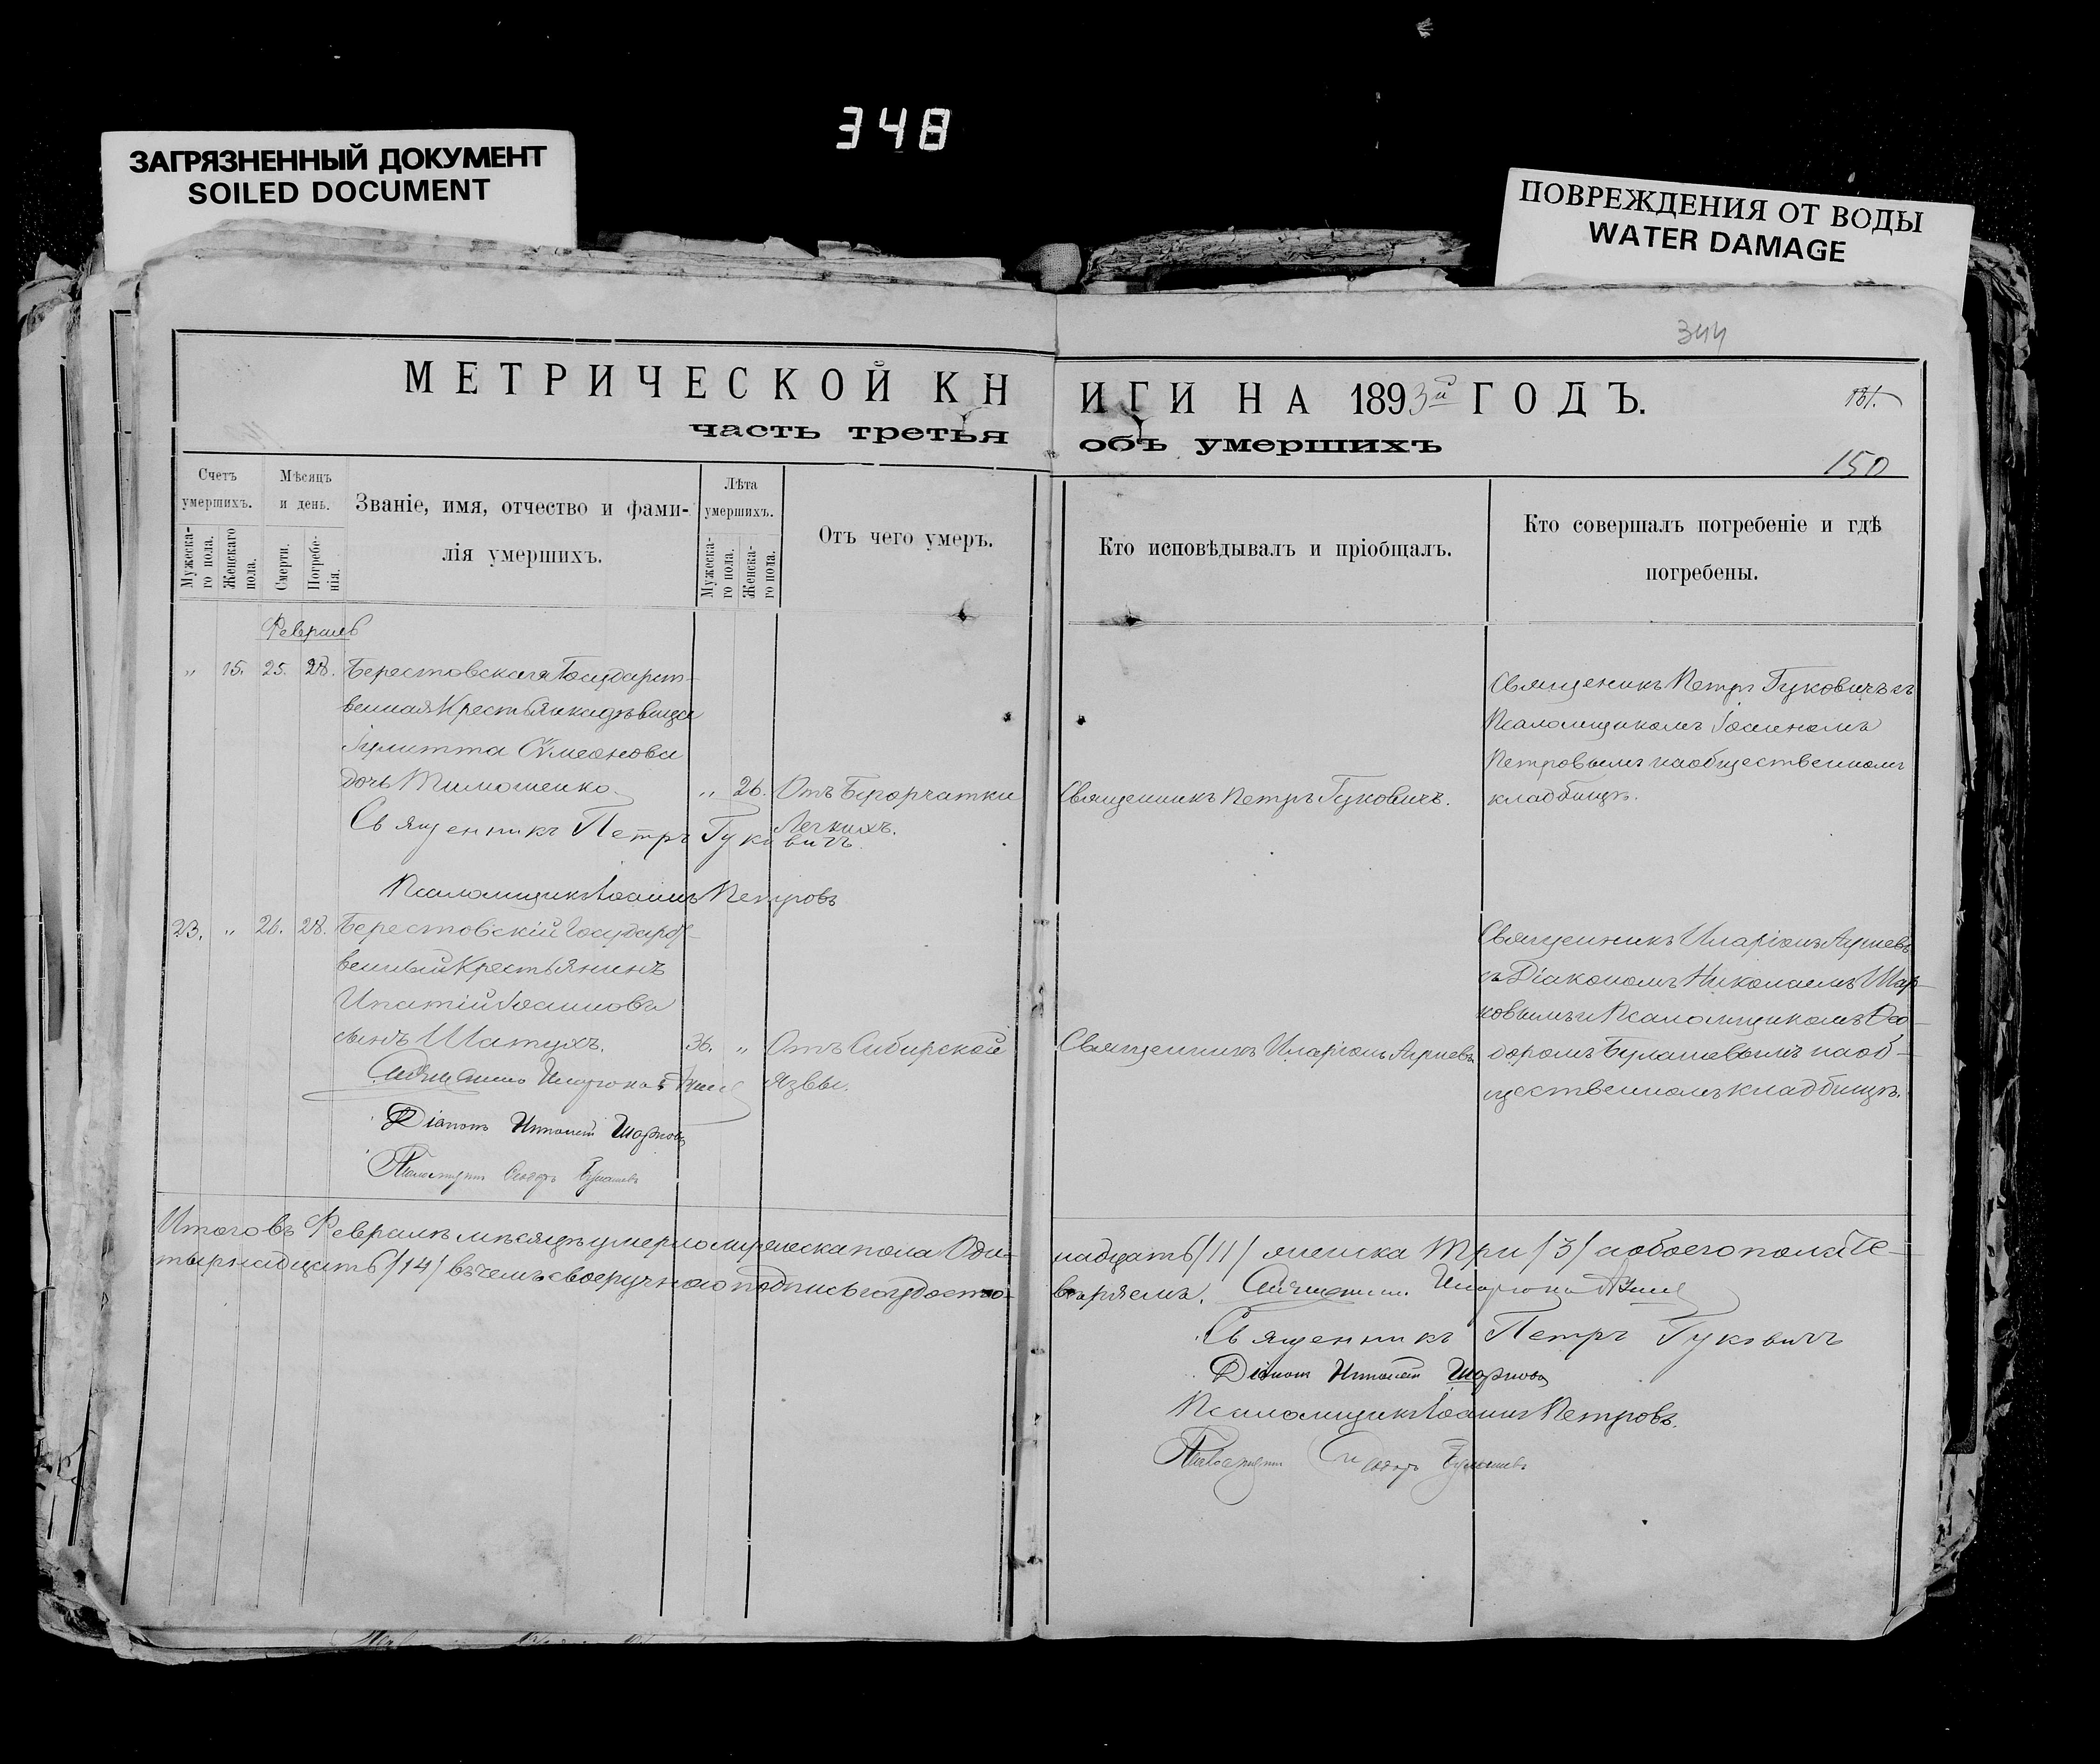 348
ЗАГРЯЗНЕННЫЙ ДОКУМЕНТ
SOILED DOCUMENT
ПОВРЕЖДЕНИЯ ОТ ВОДЫ
WATER DAMAGE
344
МЕТРИЧЕСКОЙ КН
ИГИ НА 1893й ГОДЪ.
часть третья
объ умершихъ
150
Счетъ умершихъ.
Мужеска-го пола.
Женскаго пола.
Мѣсяцъ и день.
Смерти.
Погребе-нія.
Званіе, имя, отчество и фами-
лія умершихъ.
Лѣта умершихъ.
Мужеска-го пола.
Женска-го пола.
Отъ чего умеръ.
Кто исповѣдывалъ и пріобщалъ.
Кто совершалъ погребеніе и гдѣ
погребены.
Февраль
„ 15. 25. 28. Берестовская Государст-
венная Крестьянка дѣвица
Іулитта Сѵмеонова
дочь Тимошенко. „ 26. Отъ Бугорчатки
Легкихъ.
Священникъ Петръ Гуковичъ.
Священикъ Петръ Гуковичъ съ
Псаломщикомъ Іоанномъ
Петровымъ на общественномъ
кладбищѣ.
Священникъ Петръ Гуковичъ
Псаломщикъ Іоаннъ Петровъ
23. „ 26. 28. Берестовскій Государст-
венный Крестьянинъ
Ипатій Іоанновъ
сынъ Шатухъ. 36. „ Отъ Сибирской
язвы.
Священникъ Иларіонъ
Священникъ Иларіонъ
съ Діакономъ Николаемъ Шар-
ковымъ и Псаломщикомъ Ѳео-
доромъ Булашевымъ на об-
щественномъ кладбищѣ.
Священникъ Иларіонъ
Діаконъ Николай Шарковъ
Псаломщикъ Ѳеодоръ Булашевъ
Итого въ Февралѣ мѣсяцѣ умерло мужеска пола Оди-
надцать /11/ женска Три /3/ а обоего пола Че-
тырнадцать /14/ въ чемъ своеручною подписью удосто-
вѣряемъ. Священникъ Иларіонъ
Священникъ Петръ Гуковичъ
Діаконъ Николай Шарковъ
Псаломщикъ Іоаннъ Петровъ.
Псаломщикъ Ѳеодоръ Булашевъ